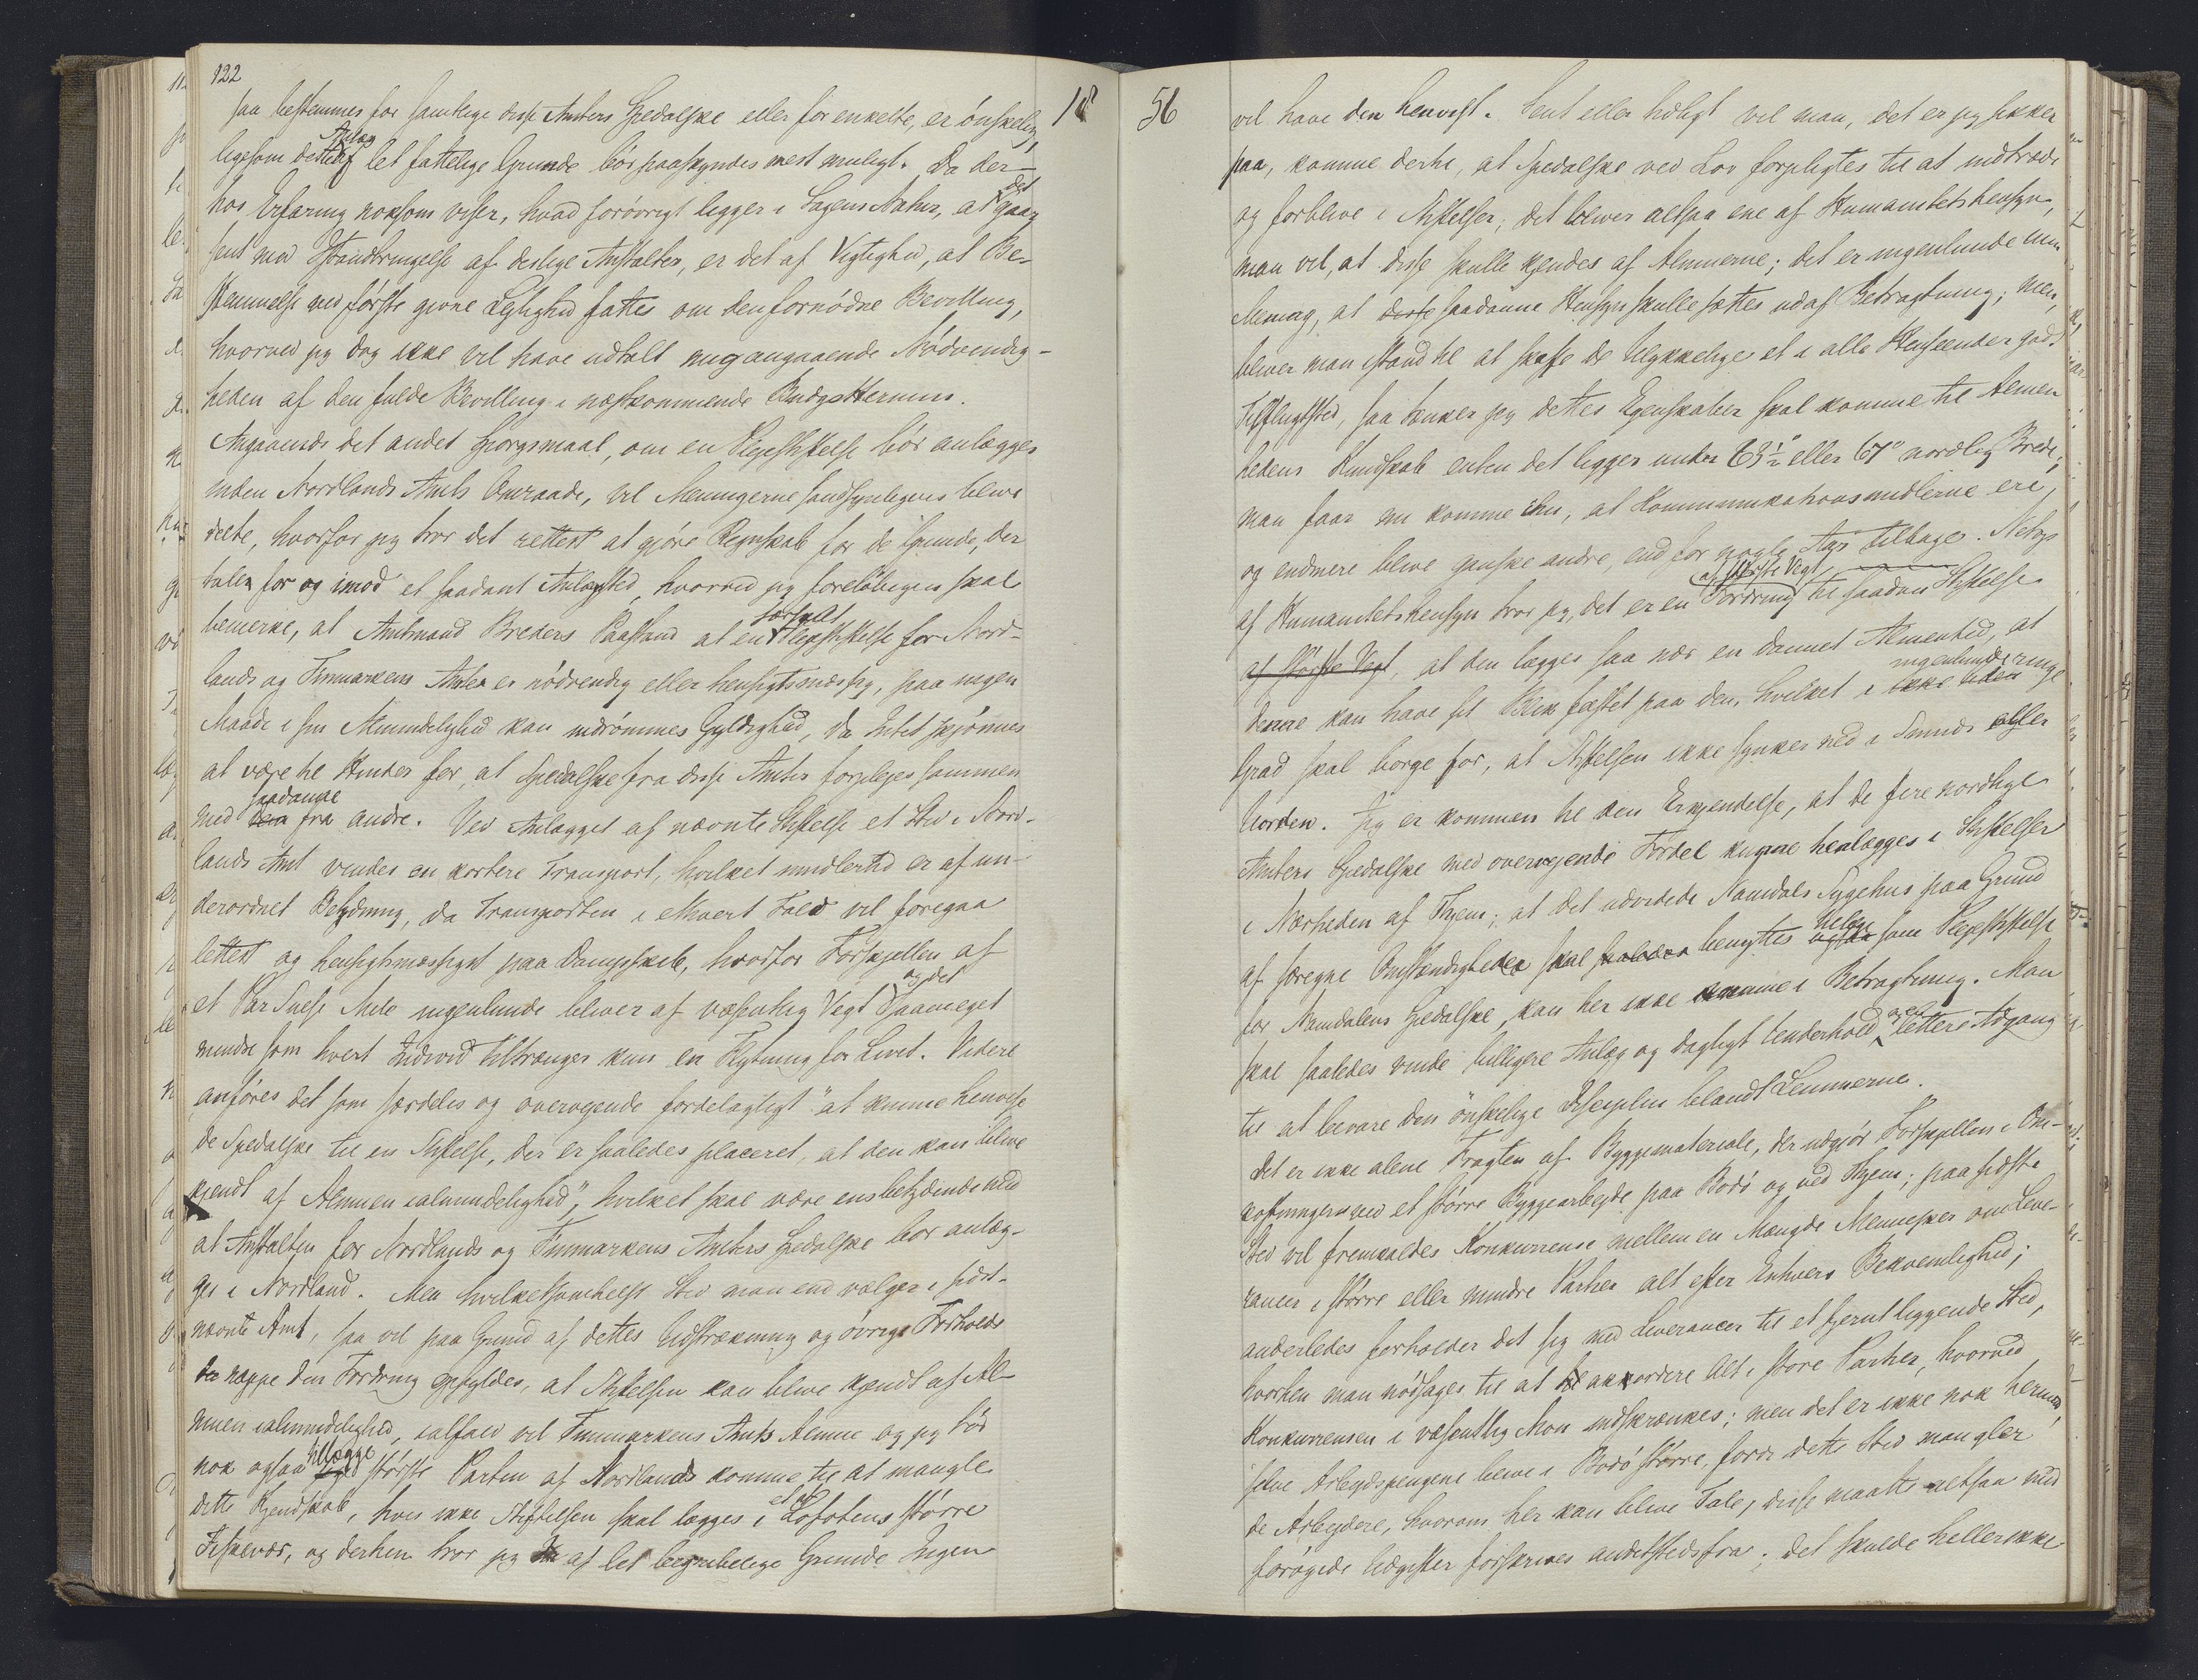 122
18
saa bestemmes for samtlige disse Amters Spedalske eller for enkelte, er ønskelig,
ligesom dettes Anlæg af let fattelige Grunde bør paaskyndes mest muligt. Da der-
hos Erfaring noksom viser, hvad forøvrigt ligger i Sagens Natur, at det gaar
sent med Istandbringelse af deslige Anstalter, er det af Vigtighed, at Be-
stemmelse ved første givne Leilighed fattes om den fornødne Bevilling,
hvorved jeg dog ikke vil have udtalt mig angaaende Nødvendig-
heden af den fulde Bevilling i næstkommende Budgettermin.
Angaaende det andet Spørgsmaal, om en Plejestiftelse bør anlægges
inden Nordlands Amts Omraade, vil Meningerne sandsynligvis blive
delte, hvorfor jeg tror det rettest at gjøre Regnskab for de Grunde, der
taler for og imod et saadant Anlægssted, hvorved jeg foreløbigen skal
bemerke, at Amtmand Breders Paastand at en særskilt Plejestiftelse for Nord-
lands og Finmarkens Amter er nødvendig eller hensigtsmæssig, paa ingen
Maade i sin Almindelighed kan indrømmes Gyldighed, da Intet skjønnes
at være til Hinder for, at Spedalske fra disse Amter forpleies sammen
med saadanne fra andre. Ved Anlægget af nævnte Stiftelse et Sted i Nord-
lands Amt vindes en kortere Transport, hvilket imidlertid er af un-
derordnet Betydning, da Transporten i ethvert Fald vil foregaa
lettest og hensigtsmæssigst paa Dampskib, hvorfor Forskjellen af
et Par Snese Mile ingenlunde bliver af væsentlig Vegt og det saameget
mindre som hvert Individ tiltrænger kun en Flytning for Livet. Videre
anføres det som særdeles og overvejende fordelagtigt "at kunne henvise
de Spedalske til en Stiftelse, der er saaledes placeret, at den kan blive
kjendt af Almuen ialmindelighed", hvilket skal være ensbetydende med
at Anstalten for Nordlands og Finmarkens Amters Spedalske bør anlæg-
ges i Nordland. Men hvilketsomhelst Sted man end vælger i sidst-
nævnte Amt, saa vil paa Grund af dettes Udstrækning og øvrige Forholde
der næppe den Fordring opfyldes, at Stiftelsen kan blive kjendt af Al-
muen ialmindelighed, ialfald vil Finmarkens Amts Almue og jeg tør
nok ogsaa tillægge største Parten af Nordlands komme til at mangle
dette Kjendskab, hvis ikke Stiftelsen skal lægges i et af Lofotens større
Fiskevær, og derhen tror jeg af let begribelige Grunde Ingen
56
vil have den henvist. Sent eller tidligt vil man, det er jeg sikker
paa, komme dertil, at Spedalske ved Lov forpligtes til at indtræde
og forblive i Stiftelser; det bliver altsaa ene af Humanitetshensyn,
man vil, at disse skulle kjendes af Almuerne; det er ingenlunde min
Mening, at disse saadanne Hensyn skulle sættes udaf Betragtning; men
bliver man istand til at skaffe de Ulykkelige et i alle Henseender godt
Tilflugtsted, saa tænker jeg dettes Egenskaber skal komme til Almen-
hedens Kundskab enten det ligger under 63½° eller 67° nordlig Brede;
man faar nu komme ihu, at Kommunikationsmidlerne ere,
og endmere blive ganske andre, end for nogle Aar tilbage. Netop
af Humanitetshensyn tror jeg, det er en Fordring af største Vegt til saadan Stiftelse
af største Vegt, at den lægges saa nær en dannet Almenhed, at
denne kan have sit Blik fæstet paa den, hvilket i ikke liden ingenlunde ringe
Grad skal borge for, at Stiftelsen ikke synker ned i Smuds eller
Uorden. Jeg er kommen til den Erkjendelse, at de fire nordlige
Amters Spedalske med overvejende Fordel kunne henlægges i Stiftelser
i Nærheden af Thjem; at det udvidede Namdals Sygehus paa Grund
af særegne Omstændigheder skal saaledes benyttes ogsaa tillige som Plejestiftelse
for Namdalens Spedalske, kan her ikke komme i Betragtning. Man
skal saaledes vinde billigere Anlæg og dagligt Underhold og en lettere Adgang
til at bevare den ønskelige Disciplin blandt Lemmerne.
Det er ikke alene Fragten af Byggematerialer, der udgjør Forskjellen i Om-
kostningerne ved et større Byggearbejde paa Bodø og ved Thjem; paa sidste
Sted vil fremkaldes Konkurrense mellem en Mængde Mennesker om Leve-
rancer i større eller mindre Partier alt efter Enhvers Bekvemlighed;
anderledes forholder det sig med Leverancer til et fjernt liggende Sted,
hvorhen man nødsages til at akkordere Alt i store Partier, hvorved
Konkurrensen i væsentlig Mon indskrænkes; men det er ikke nok hermed,
selve Arbejdspengene blive i Bodø større, fordi dette Sted mangler
de Arbejdere, hvorom her kan blive Tale, disse maatte altsaa med
forøgede Udgifter forskrives andetstedsfra; det skulde heller ikke